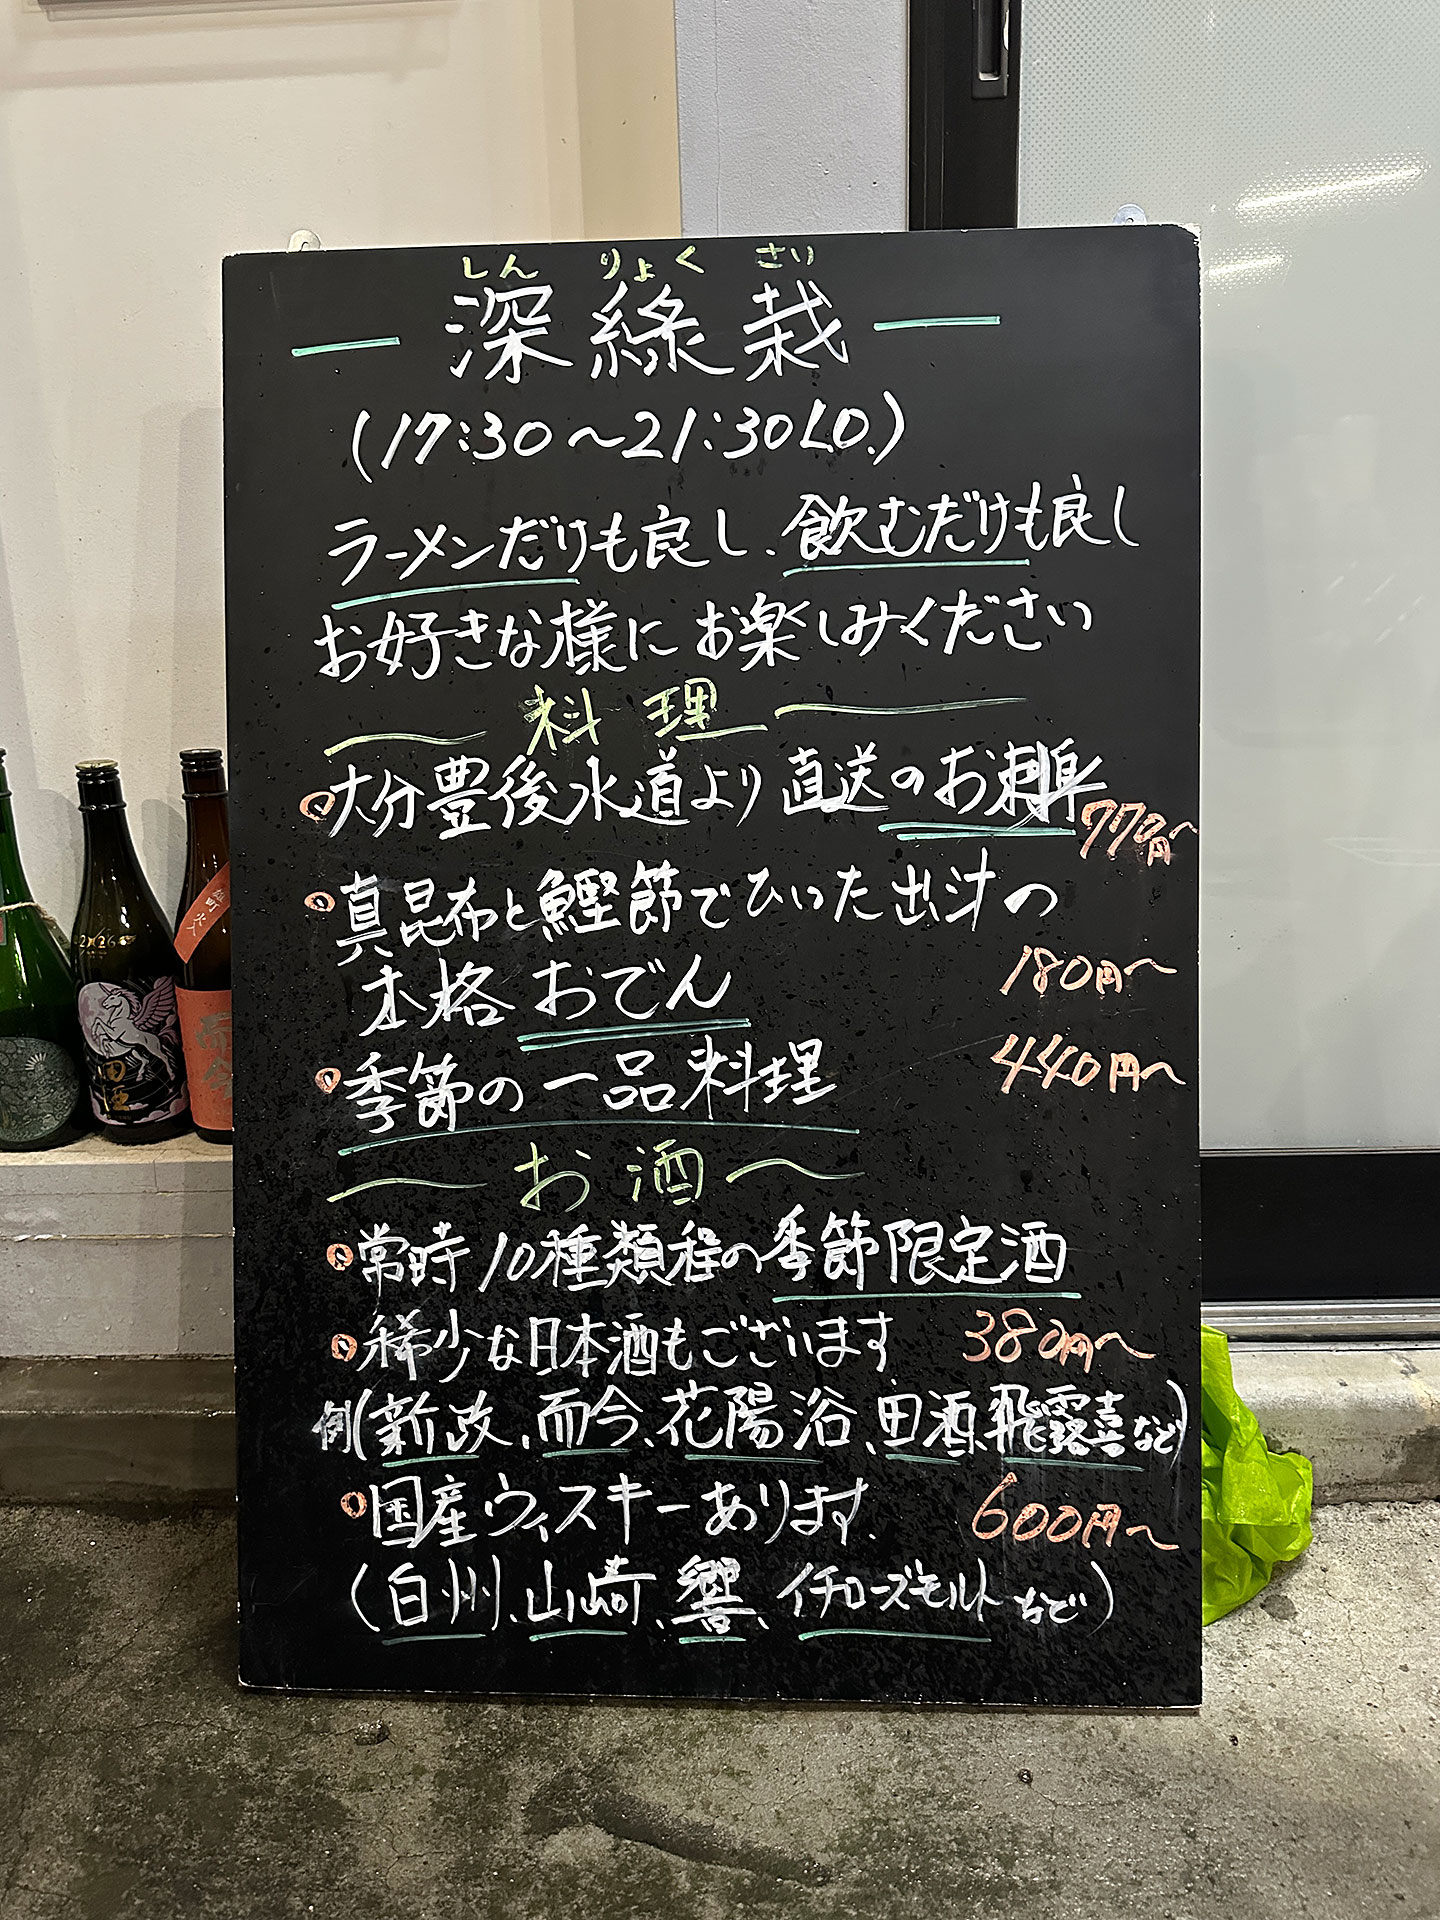 しんりょくさい
深緑栽
(17:30〜21:30L.O.)
ラーメンだけも良し、飲むだけも良し
お好きな様にお楽しみください
料理
大分豊後水道より直送のお刺身 770円〜
真昆布と鰹節でひいた出汁の
本格おでん 180円〜
季節の一品料理 440円〜
〜お酒〜
常時10種類程の季節限定酒
稀少な日本酒もございます 380円〜
例(新政、而今、花陽浴、田酒、飛露喜など)
国産ウィスキーあります。 600円〜
(白州、山崎、響、イチローズモルトなど)
2026
田酒
雄町 火入
而今